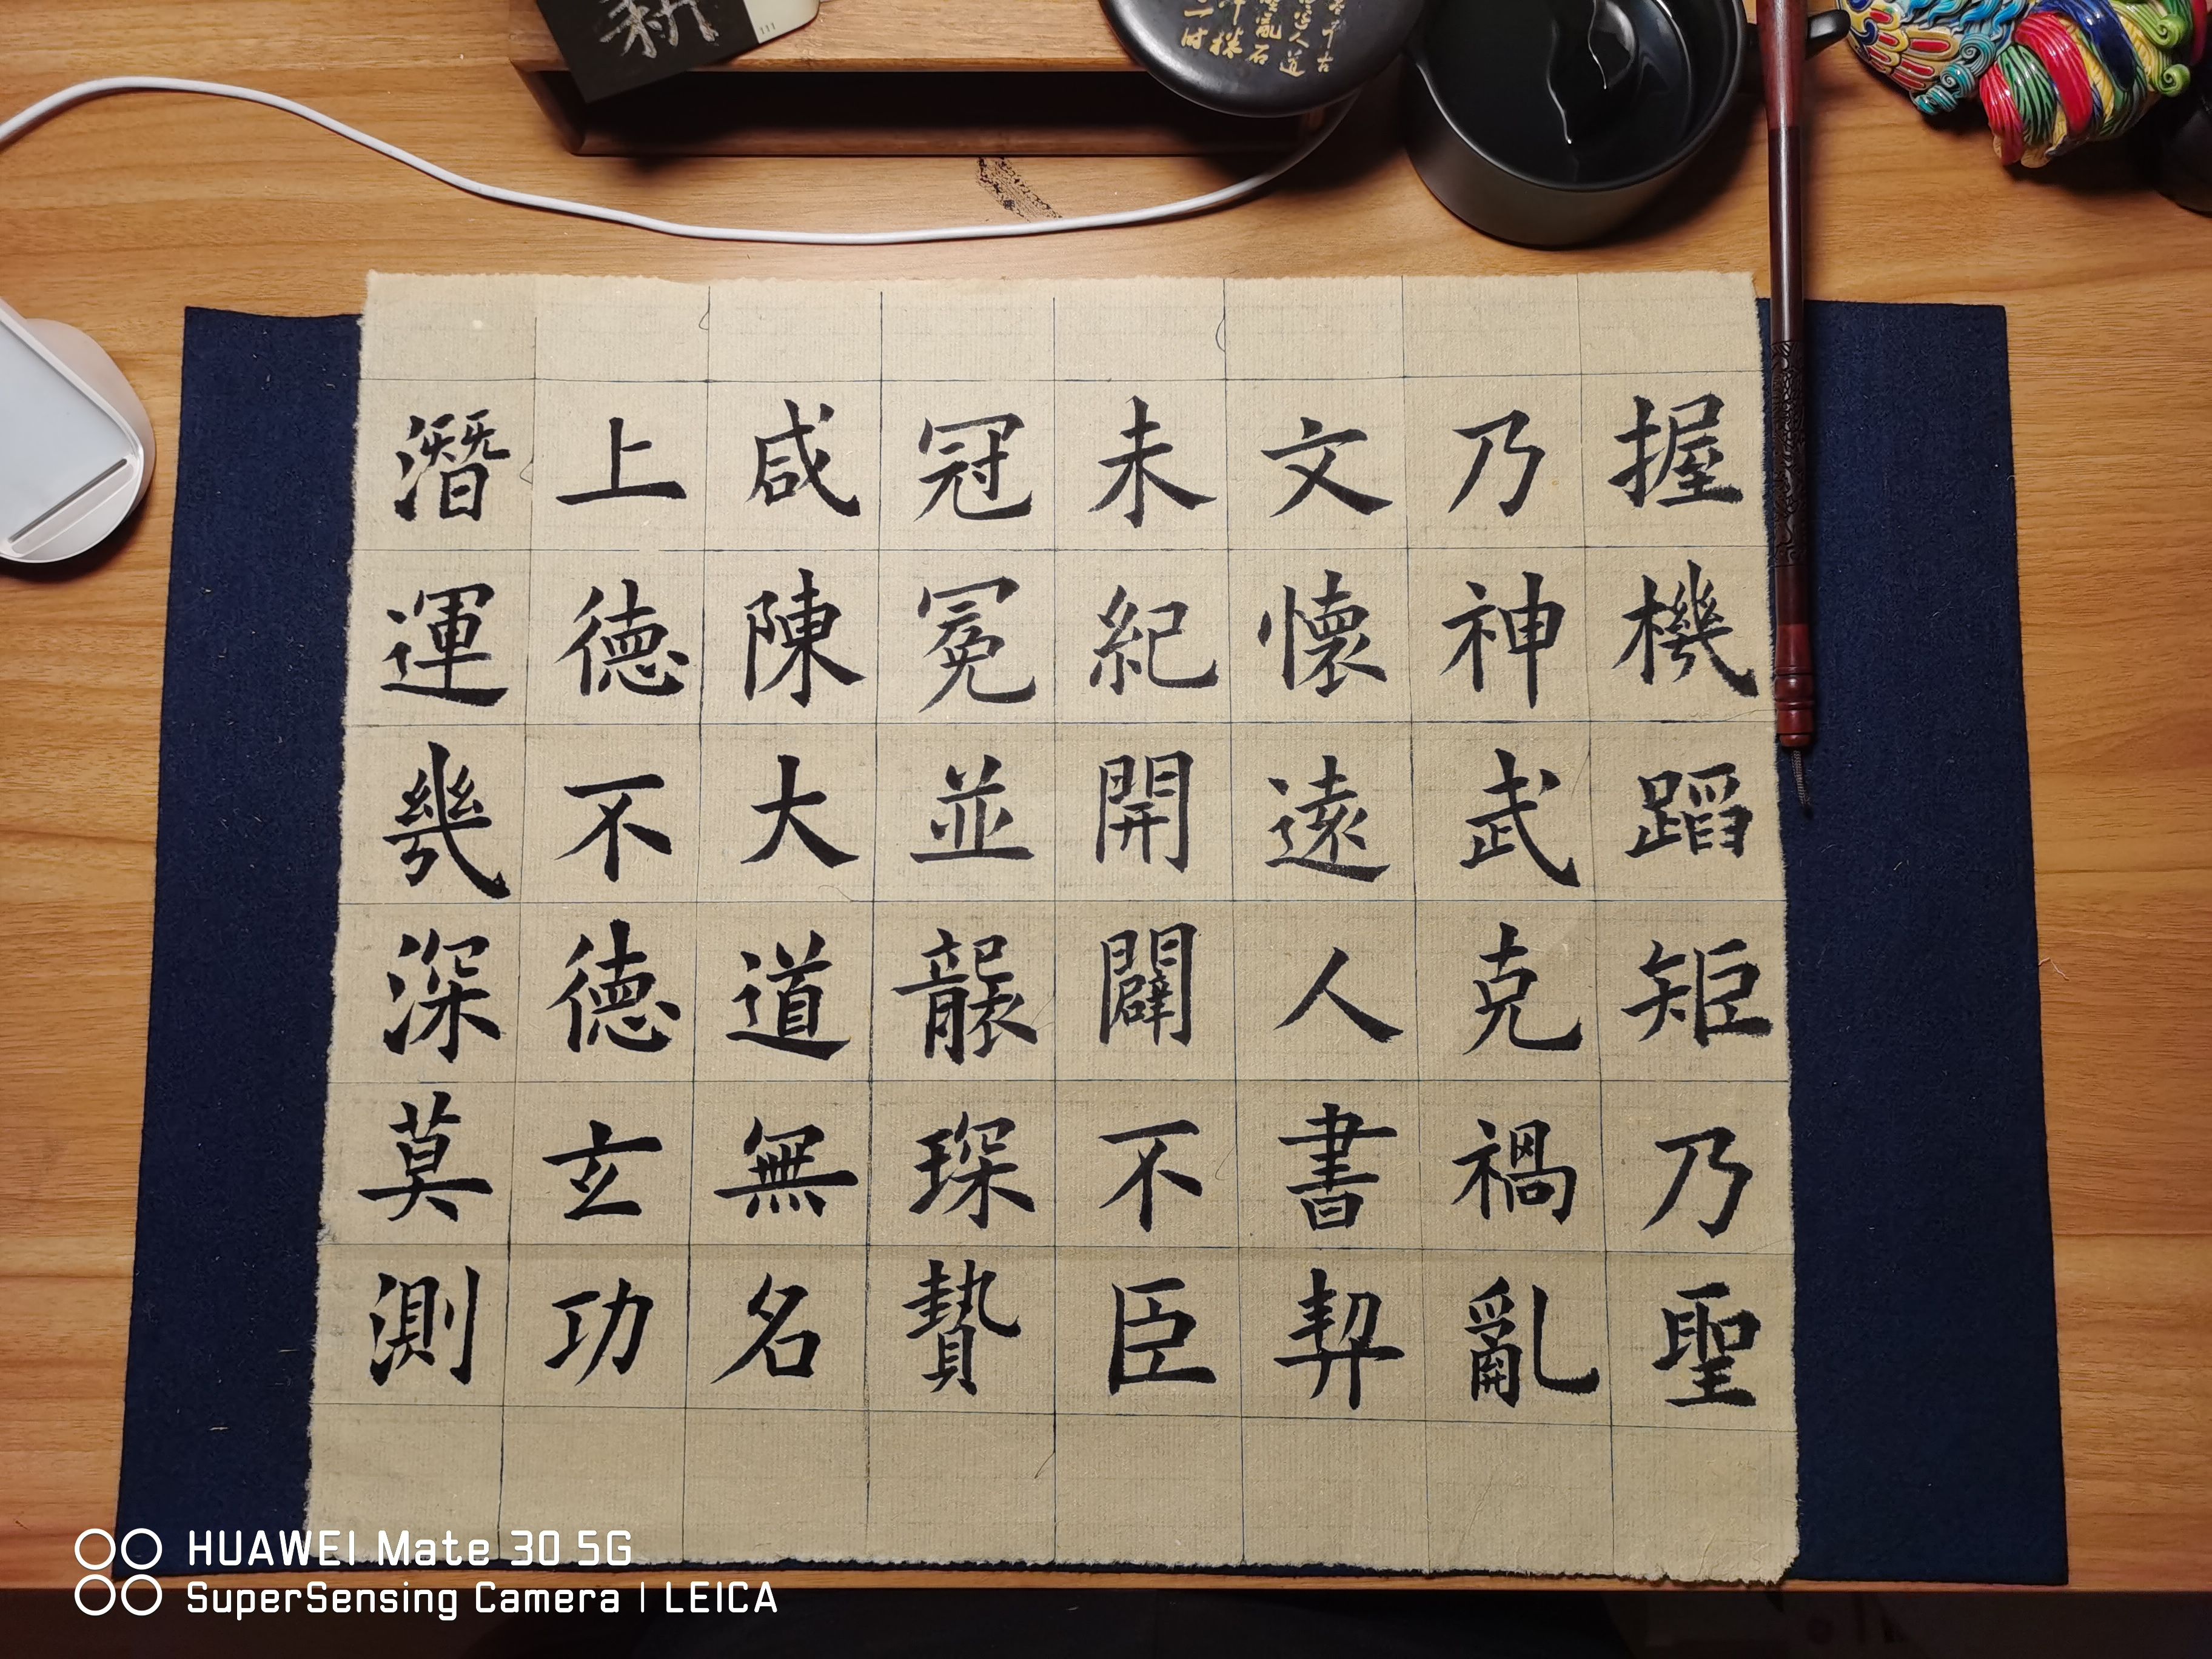 握機蹈矩乃聖
乃神武克禍亂
文懷遠人書契
未紀開闢不臣
冠冕並襲琛贄
咸陳大道無名
上德不德玄功
潛運幾深莫測
HUAWEI Mate 30 5G
SuperSensing Camera | LEICA